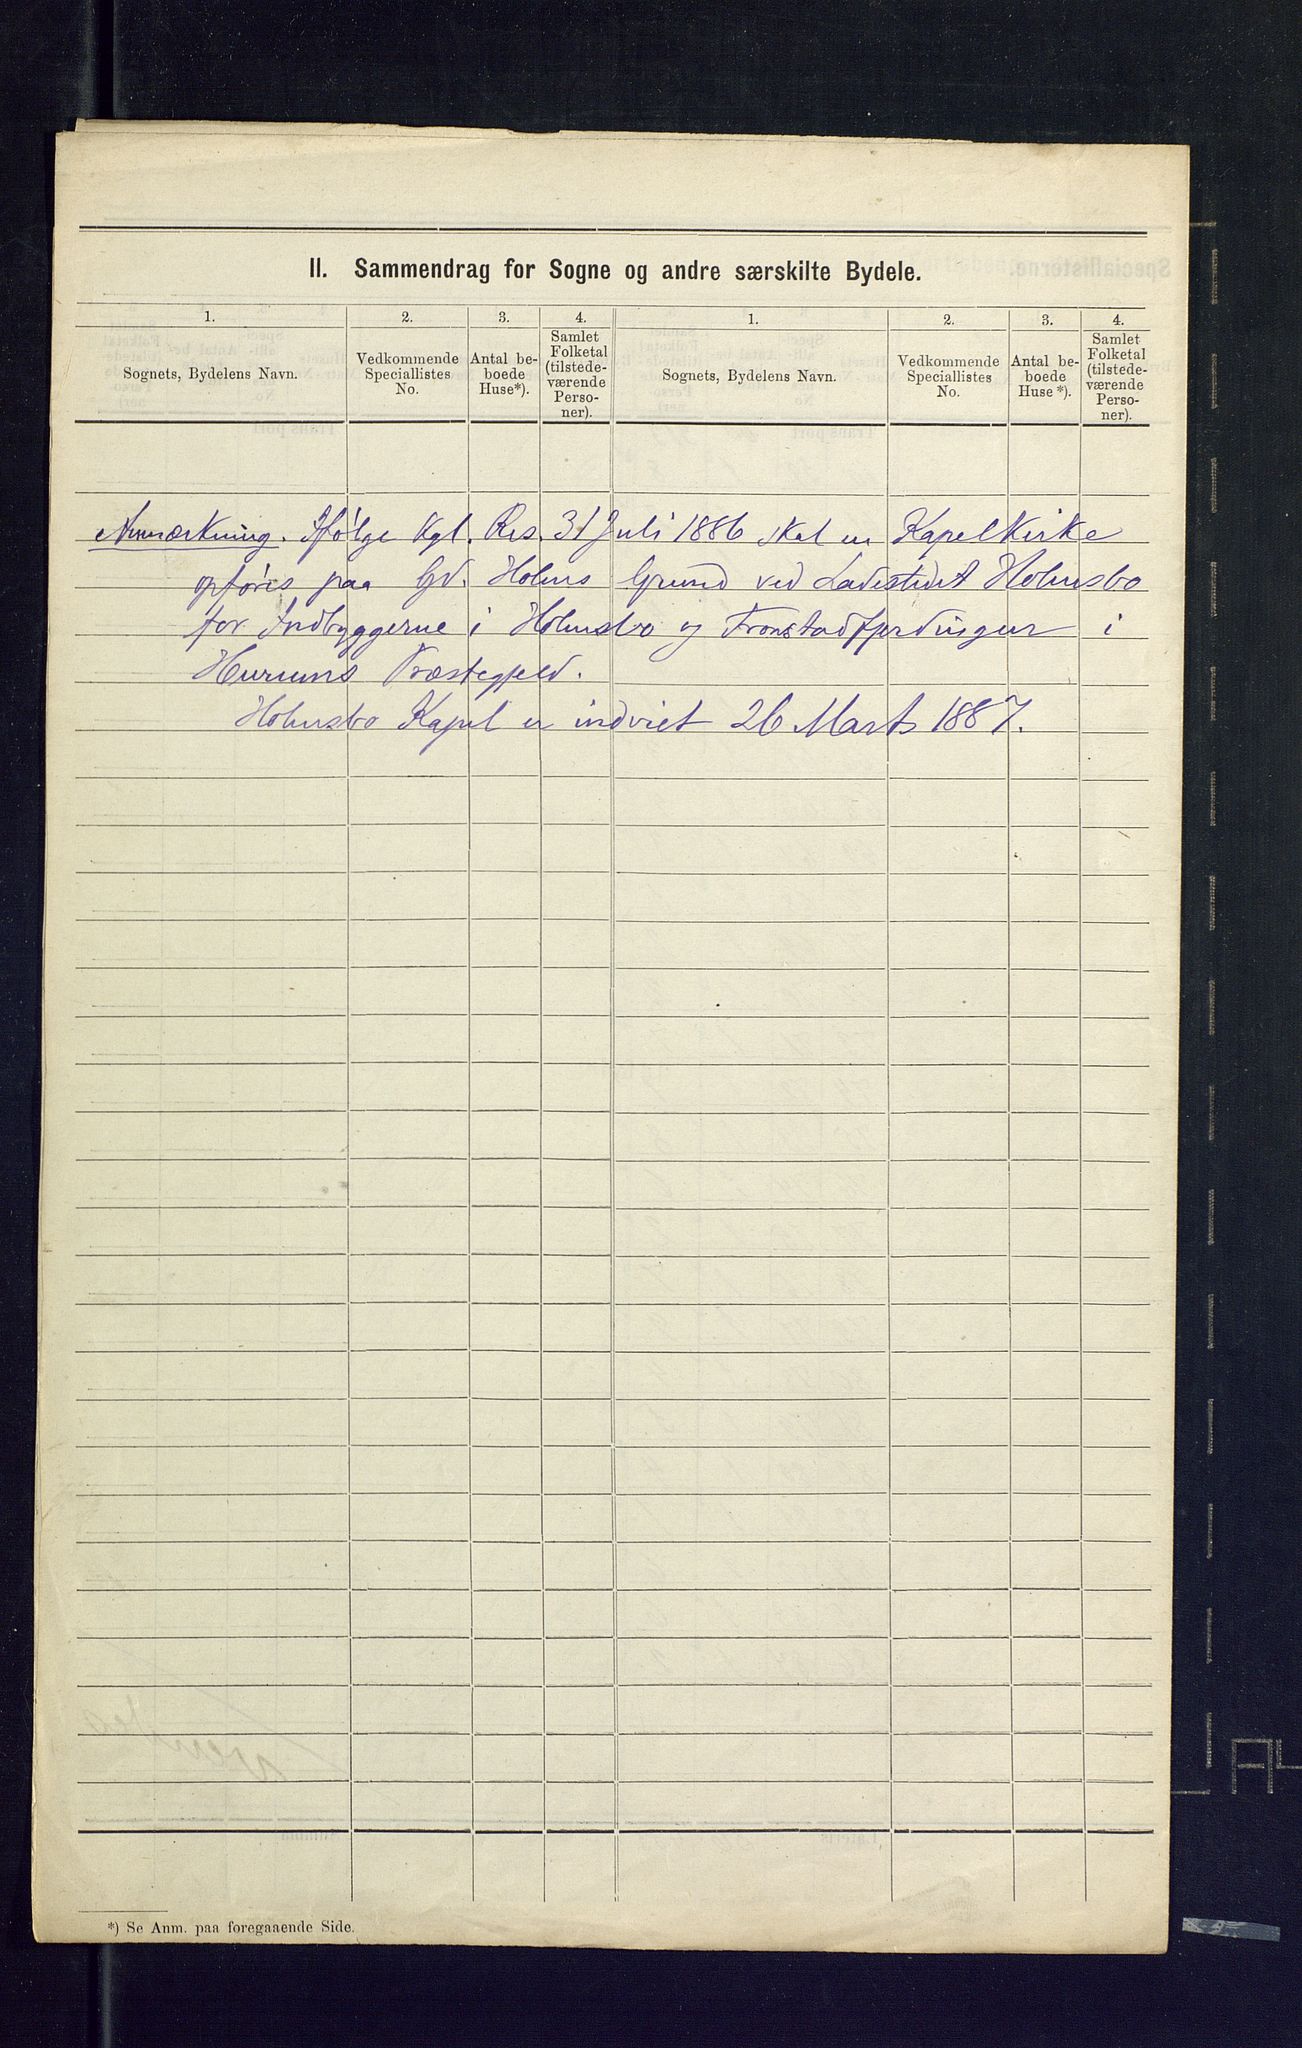 II. Sammendrag for Sogne og andre særskilte Bydele.
1. 2. 3. 4. 1. 2. 3. 4.
Sognets, Bydelens Navn.
Vedkommende
Speciallistes
No.
Antal be-
boede
Huse*).
Samlet
Folketal
(tilstede-
værende
Perso-
ner).
Sognets, Bydelens Navn.
Vedkommende
Speciallistes
No.
Antal be-
boede
Huse*).
Samlet
Folketal
(tilstede-
værende
Perso-
ner).
Anmærkning. Ifølge Kgl. Res. 31 Juli 1886 skal en Kapelkirke
opføres paa Gd. Holms Grund ved Ladestedet Holmsbo
for Indbyggerne i Holmsbo og Tronstadfjerdinger i
Hurums Præstegjeld.
Holmsbo Kapel er indviet 26 Marts 1887.
*) Se Anm. paa foregaaende Side.